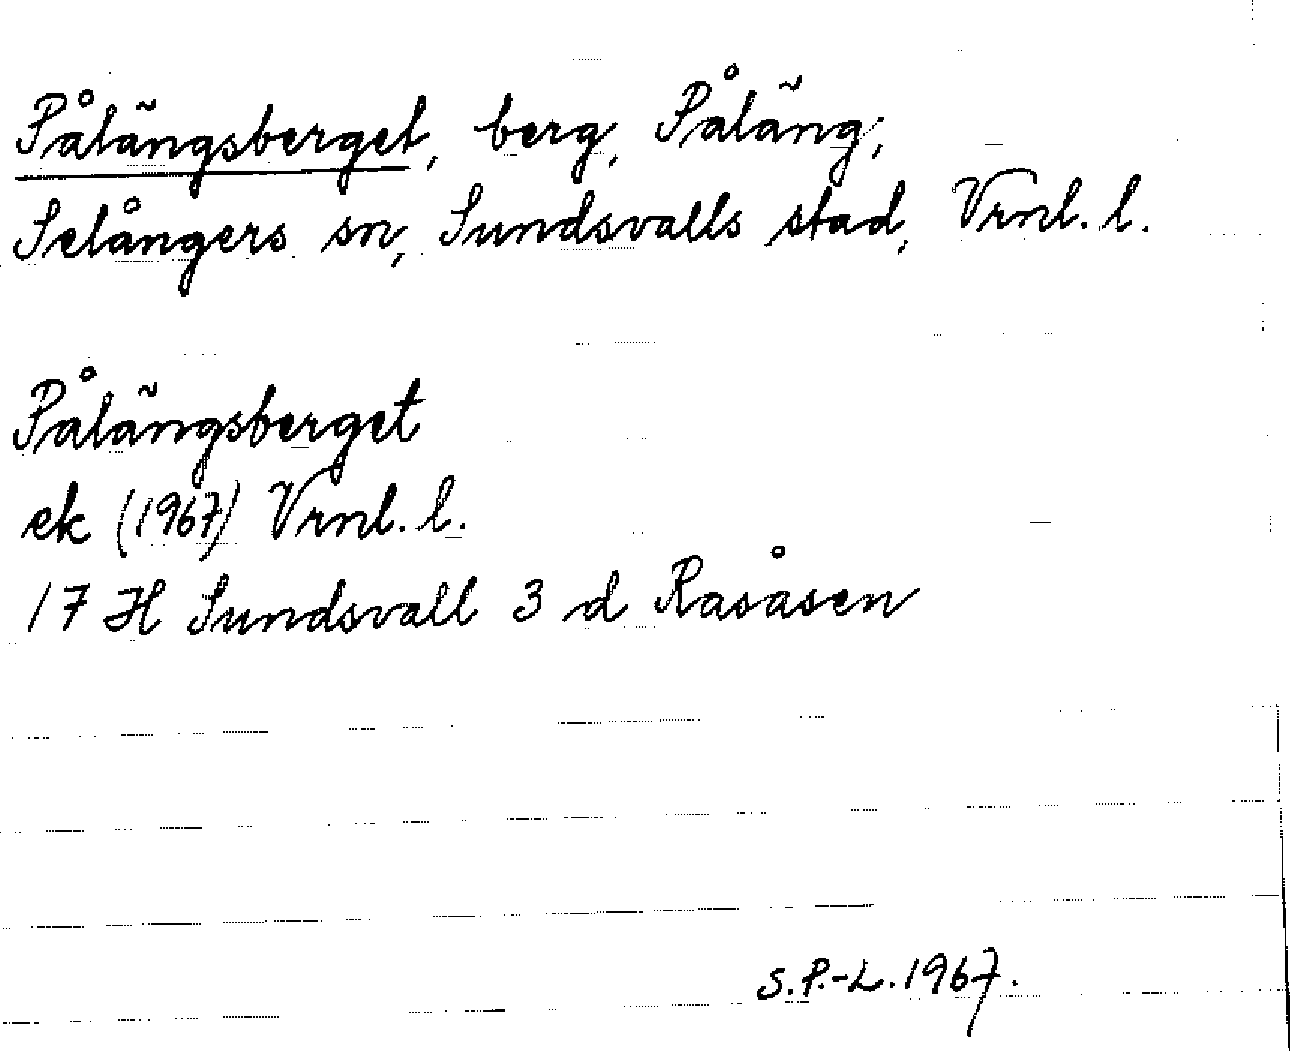 Pålängsberget, berg, Påläng;
Selångers sn, Sundsvalls stad, Vrnl. l.
Pålängsberget
ek (1967) Vrnl. l.
17 H Sundsvall 3 d Rasåsen
S.P.-L. 1967.